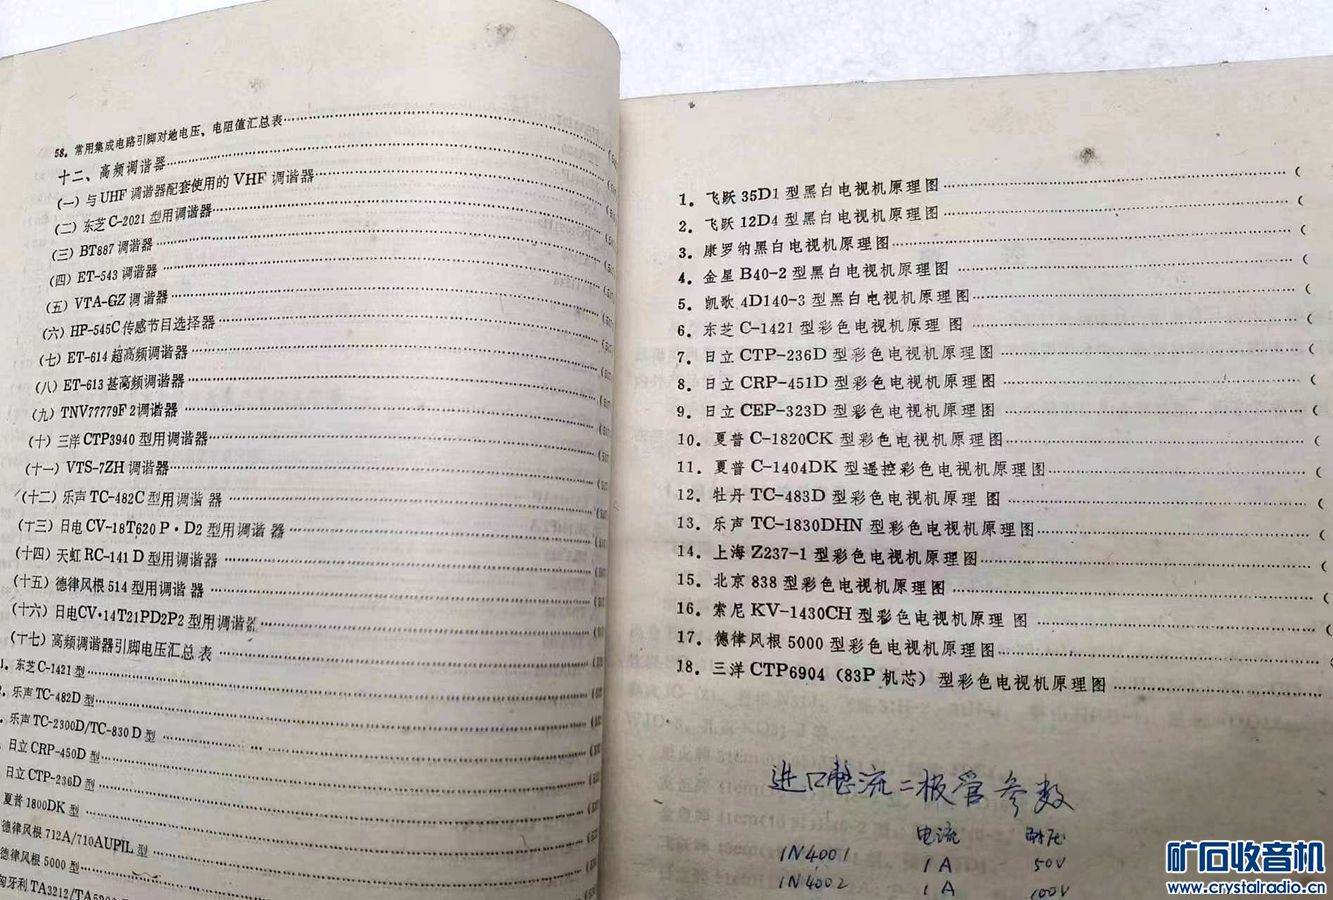 58. 常用集成电路引脚对地电压，电阻值汇总表
十二、高频调谐器
(一) 与UHF 调谐器配套使用的 VHF 调谐器
(二) 东芝 C-2021 型用调谐器
(三) BT887 调谐器
(四) ET-543 调谐器
(五) VTA-GZ 调谐器
(六) HP-545C 传感节目选择器
(七) ET-614 超高频调谐器
(八) ET-613 甚高频调谐器
(九) TNV77779F2 调谐器
(十) 三洋 CTP3940 型用调谐器
(十一) VTS-7ZH 调谐器
(十二) 乐声 TC-482C 型用调谐器
(十三) 日电 CV-18T620 P·D2 型用调谐器
(十四) 天虹 RC-141 D 型用调谐器
(十五) 德律风根 514 型用调谐器
(十六) 日电CV·14T21PD2P2 型用调谐器
(十七) 高频调谐器引脚电压汇总表
1. 东芝 C-1421 型
2. 乐声 TC-482D 型
乐声 TC-2300D/TC-830 D 型
日立 CRP-450D 型
日立 CTP-236D 型
夏普 1800DK 型
德律风根 712A/710AUPIL 型
德律风根 5000 型
匈牙利 TA3212/
1. 飞跃 35D1 型黑白电视机原理图
2. 飞跃 12D4 型黑白电视机原理图
3. 康罗纳黑白电视机原理图
4. 金星 B40-2 型黑白电视机原理图
5. 凯歌 4D140-3 型黑白电视机原理图
6. 东芝 C-1421 型彩色电视机原理图
7. 日立 CTP-236D 型彩色电视机原理图
8. 日立 CRP-451D 型彩色电视机原理图
9. 日立 CEP-323D 型彩色电视机原理图
10. 夏普 C-1820CK 型彩色电视机原理图
11. 夏普 C-1404DK 型遥控彩色电视机原理图
12. 牡丹 TC-483D 型彩色电视机原理图
13. 乐声 TC-1830DHN 型彩色电视机原理图
14. 上海 Z237-1 型彩色电视机原理图
15. 北京 838 型彩色电视机原理图
16. 索尼 KV-1430CH 型彩色电视机原理图
17. 德律风根 5000 型彩色电视机原理图
18. 三洋 CTP6904 (83P 机芯) 型彩色电视机原理图
进口整流二极管参数
电流 耐压
1N4001 1A 50V
1N4002 1A 100V
矿石收音机
www.crystalradio.cn